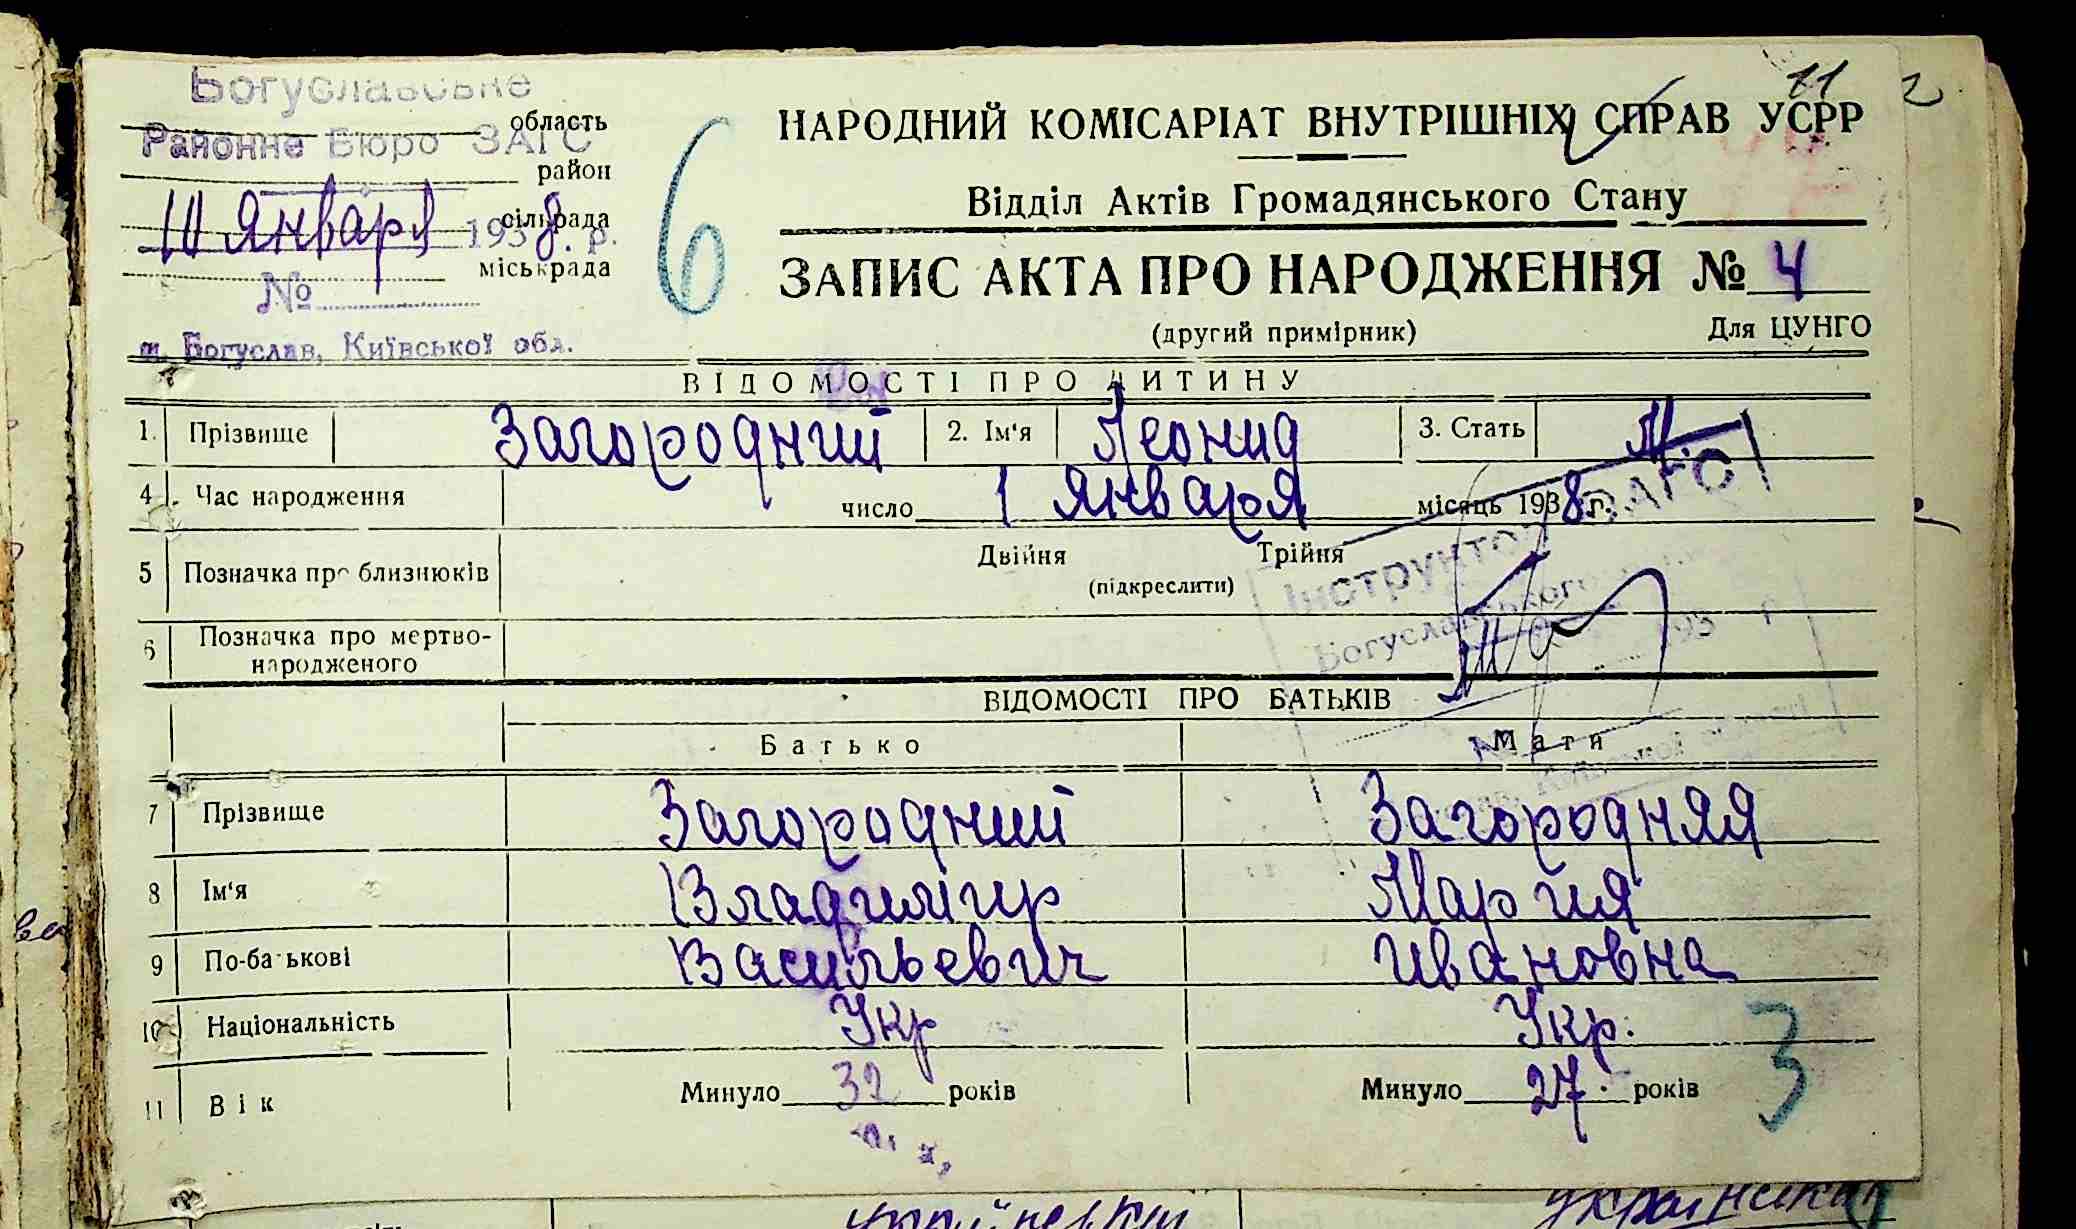 Богуславське
область
Районне Бюро ЗАГС
район
10 Января 1938. р.
сільрада
міськрада
№
м. Богуслав, Київської обл.
6
11
2
НАРОДНИЙ КОМІСАРІАТ ВНУТРІШНІХ СПРАВ УСРР
Відділ Актів Громадянського Стану
ЗАПИС АКТА ПРО НАРОДЖЕННЯ № 4
(другий примірник)
Для ЦУНГО
ВІДОМОСТІ ПРО ДИТИНУ
1. Прізвище Загородний 2. Ім'я Леонид 3. Стать М.
4. Час народження число 1 Января місяць 1938 г.
5 Позначка про близнюків Двійня Трійня
(підкреслити)
Інструктор ЗАГС
Богуславського
193 р
6 Позначка про мертво-
народженого
ВІДОМОСТІ ПРО БАТЬКІВ
Батько Мати
Київської області
7 Прізвище Загородний Загородняя
8 Ім'я Владимир Мария
9 По-батькові Васильевич Ивановна
10 Національність Укр Укр.
11 Вік Минуло 32 років Минуло 27. років
3
українська